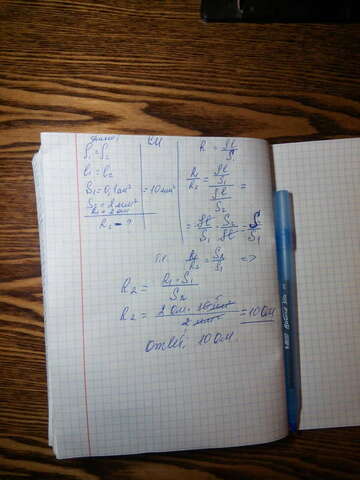 Дано:
СИ
ρ₁ = ρ₂
l₁ = l₂
S₁ = 0,1 см² = 10 мм²
S₂ = 2 мм²
R₁ = 2 Ом
R₂ - ?
R = ρl/S
R₁/R₂ = (ρl/S₁)/(ρl/S₂) =
= ρl/S₁ · S₂/ρl = S₂/S₁
т.е. R₁/R₂ = S₂/S₁ =>
R₂ = R₁ · S₁/S₂
R₂ = 2 Ом · 10 мм²/2 мм² = 10 Ом
Ответ: 10 Ом.